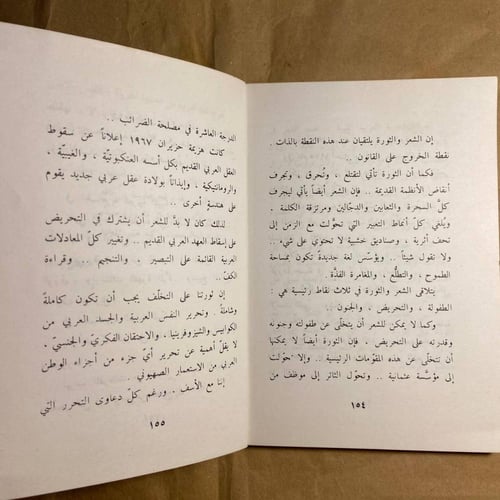 إن الشعر والثورة يلتقيان عند هذه النقطة بالذات .
نقطة الخروج على القانون ..
فكما أن الثورة تأتي لتقتلع ، وتُحرق ، وتجرف
أنقاض الأنظمة القديمة .. فإن الشعر أيضاً يأتي ليجرف
كلّ السحرة والثعابين والدجّالين ومرتزقة الكلمة .
ويُلغي كلّ أنماط التعبير التي تحوّلت مع الزمن إلى
تحف أثرية ، وصناديق خشبية لا تحتوي على شيء ..
ولا تقول شيئاً .. ويؤسّس لغة جديدة تكون بمساحة
الطموح ، والتطلّع ، والمغامرة الفذّة .
يتلاقى الشعر والثورة في ثلاث نقاط رئيسية هي :
الطفولة ، والتحريض ، والجنون ..
وكما لا يمكن للشعر أن يتخلّى عن طفولته وجنونه
وقدرته على التحريض ، فإن الثورة أيضاً لا يمكنها
أن تتخلّى عن هذه المقوّمات الرئيسية .. وإلا تحوّلت
إلى مؤسّسة عثمانية .. وتحوّل الثائر إلى موظف من
١٥٤
الدرجة العاشرة في مصلحة الضرائب ..
كانت هزيمة حزيران ١٩٦٧ إعلاناً عن سقوط
العقل العربي القديم بكل أسسه العنكبوتيّة ، والغيبيّة ،
والرومانتيكية ، وإيذاناً بولادة عقل عربي جديد يقوم
على هندسة أخرى ..
لذلك كان لا بدّ للشعر أن يشترك في التحريض
على إسقاط العهد العربي القديم .. وتغيير كلّ المعادلات
العربية القائمة على التبصير .. والتنجيم .. وقراءة
الكفّ ..
إن ثورتنا على التخلّف يجب أن تكون كاملة
وشاملة . وتحرير النفس العربية والجسد العربي من
الكوابيس والشيزوفرينيا ، والاحتقان الفكريّ والجنسيّ .
لا يقلّ أهمية عن تحرير أيّ جزء من أجزاء الوطن
العربي من الاستعمار الصهيوني .
إننا مع الأسف .. ورغم كلّ دعاوى التحرر التي
١٥٥